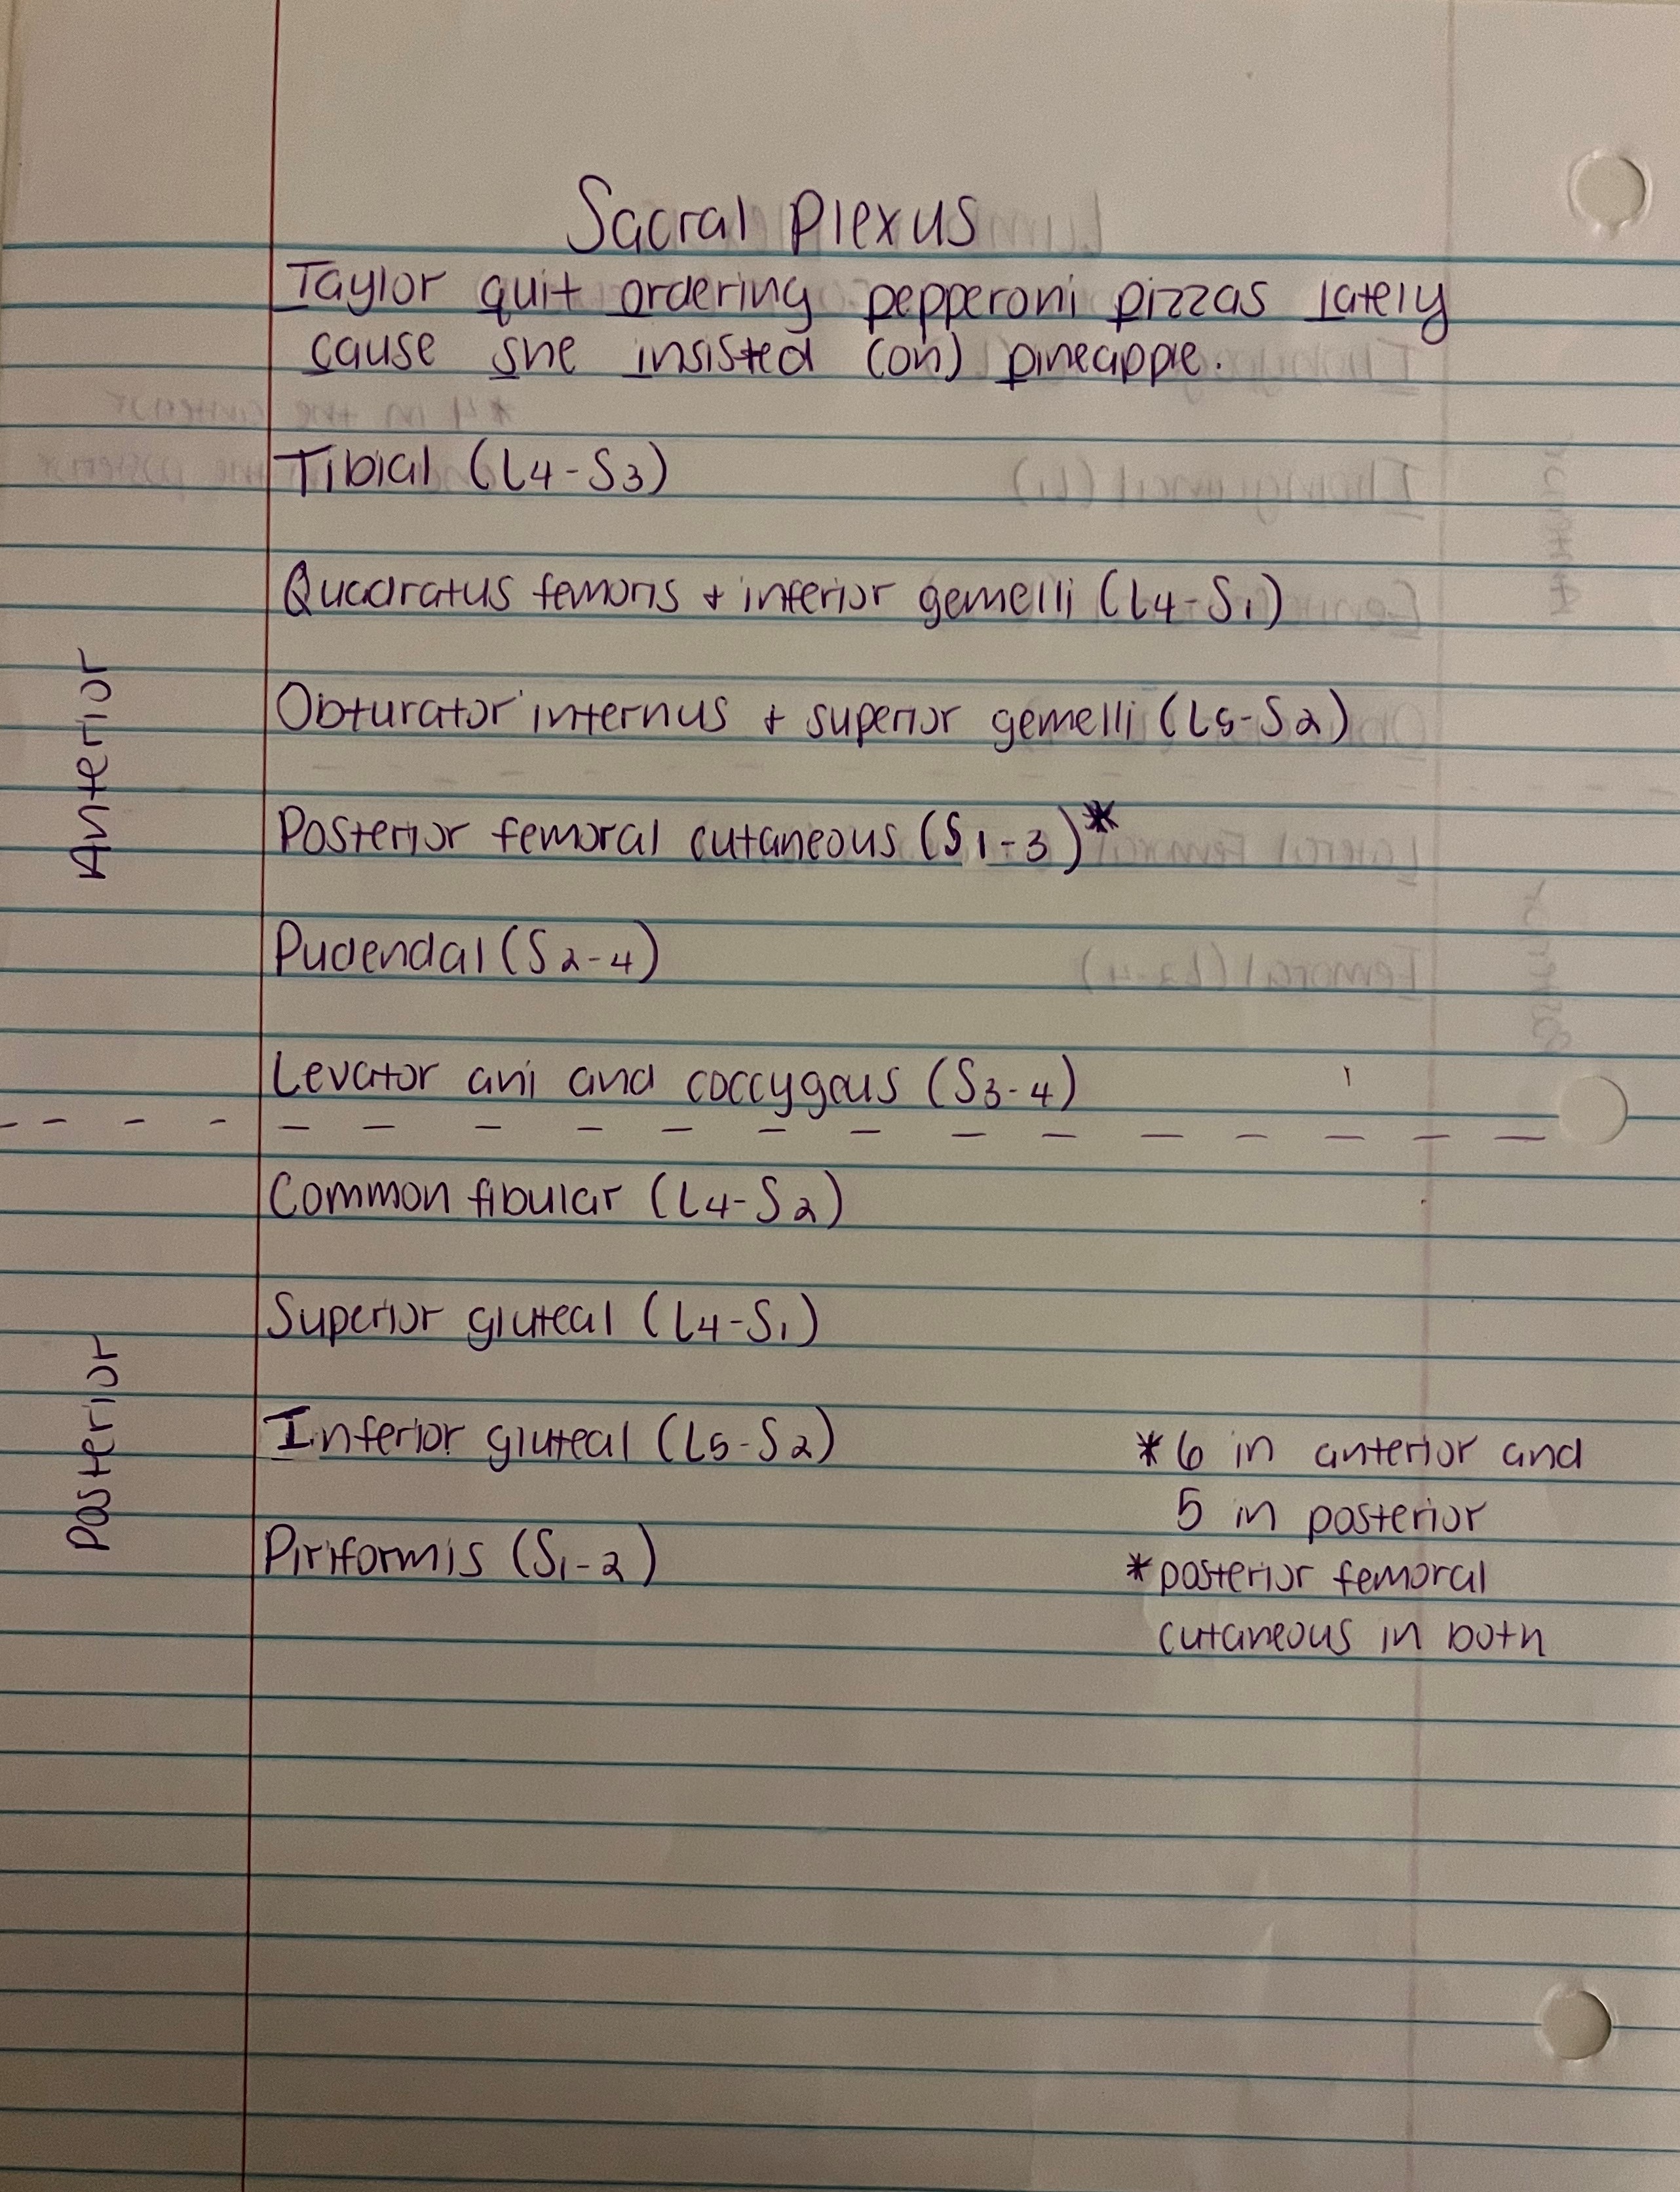 Sacral Plexus
Taylor quit ordering pepperoni pizzas lately
cause she insisted (on) pineapple.
Tibial (L4-S3)
Quadratus femoris + inferior gemelli (L4-S1)
Obturator internus + superior gemelli (L5-S2)
Anterior
Posterior femoral cutaneous (S1-3)*
Pudendal (S2-4)
Levator ani and coccygeus (S3-4)
Common fibular (L4-S2)
Superior gluteal (L4-S1)
Posterior
Inferior gluteal (L5-S2)
Piriformis (S1-2)
*6 in anterior and
5 in posterior
*posterior femoral
cutaneous in both